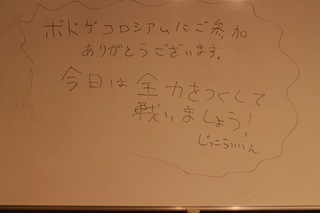 ボドゲコロシアムにご参加
ありがとうございます。
今日は全力をつくして
戦いましょう!
じっこういいん